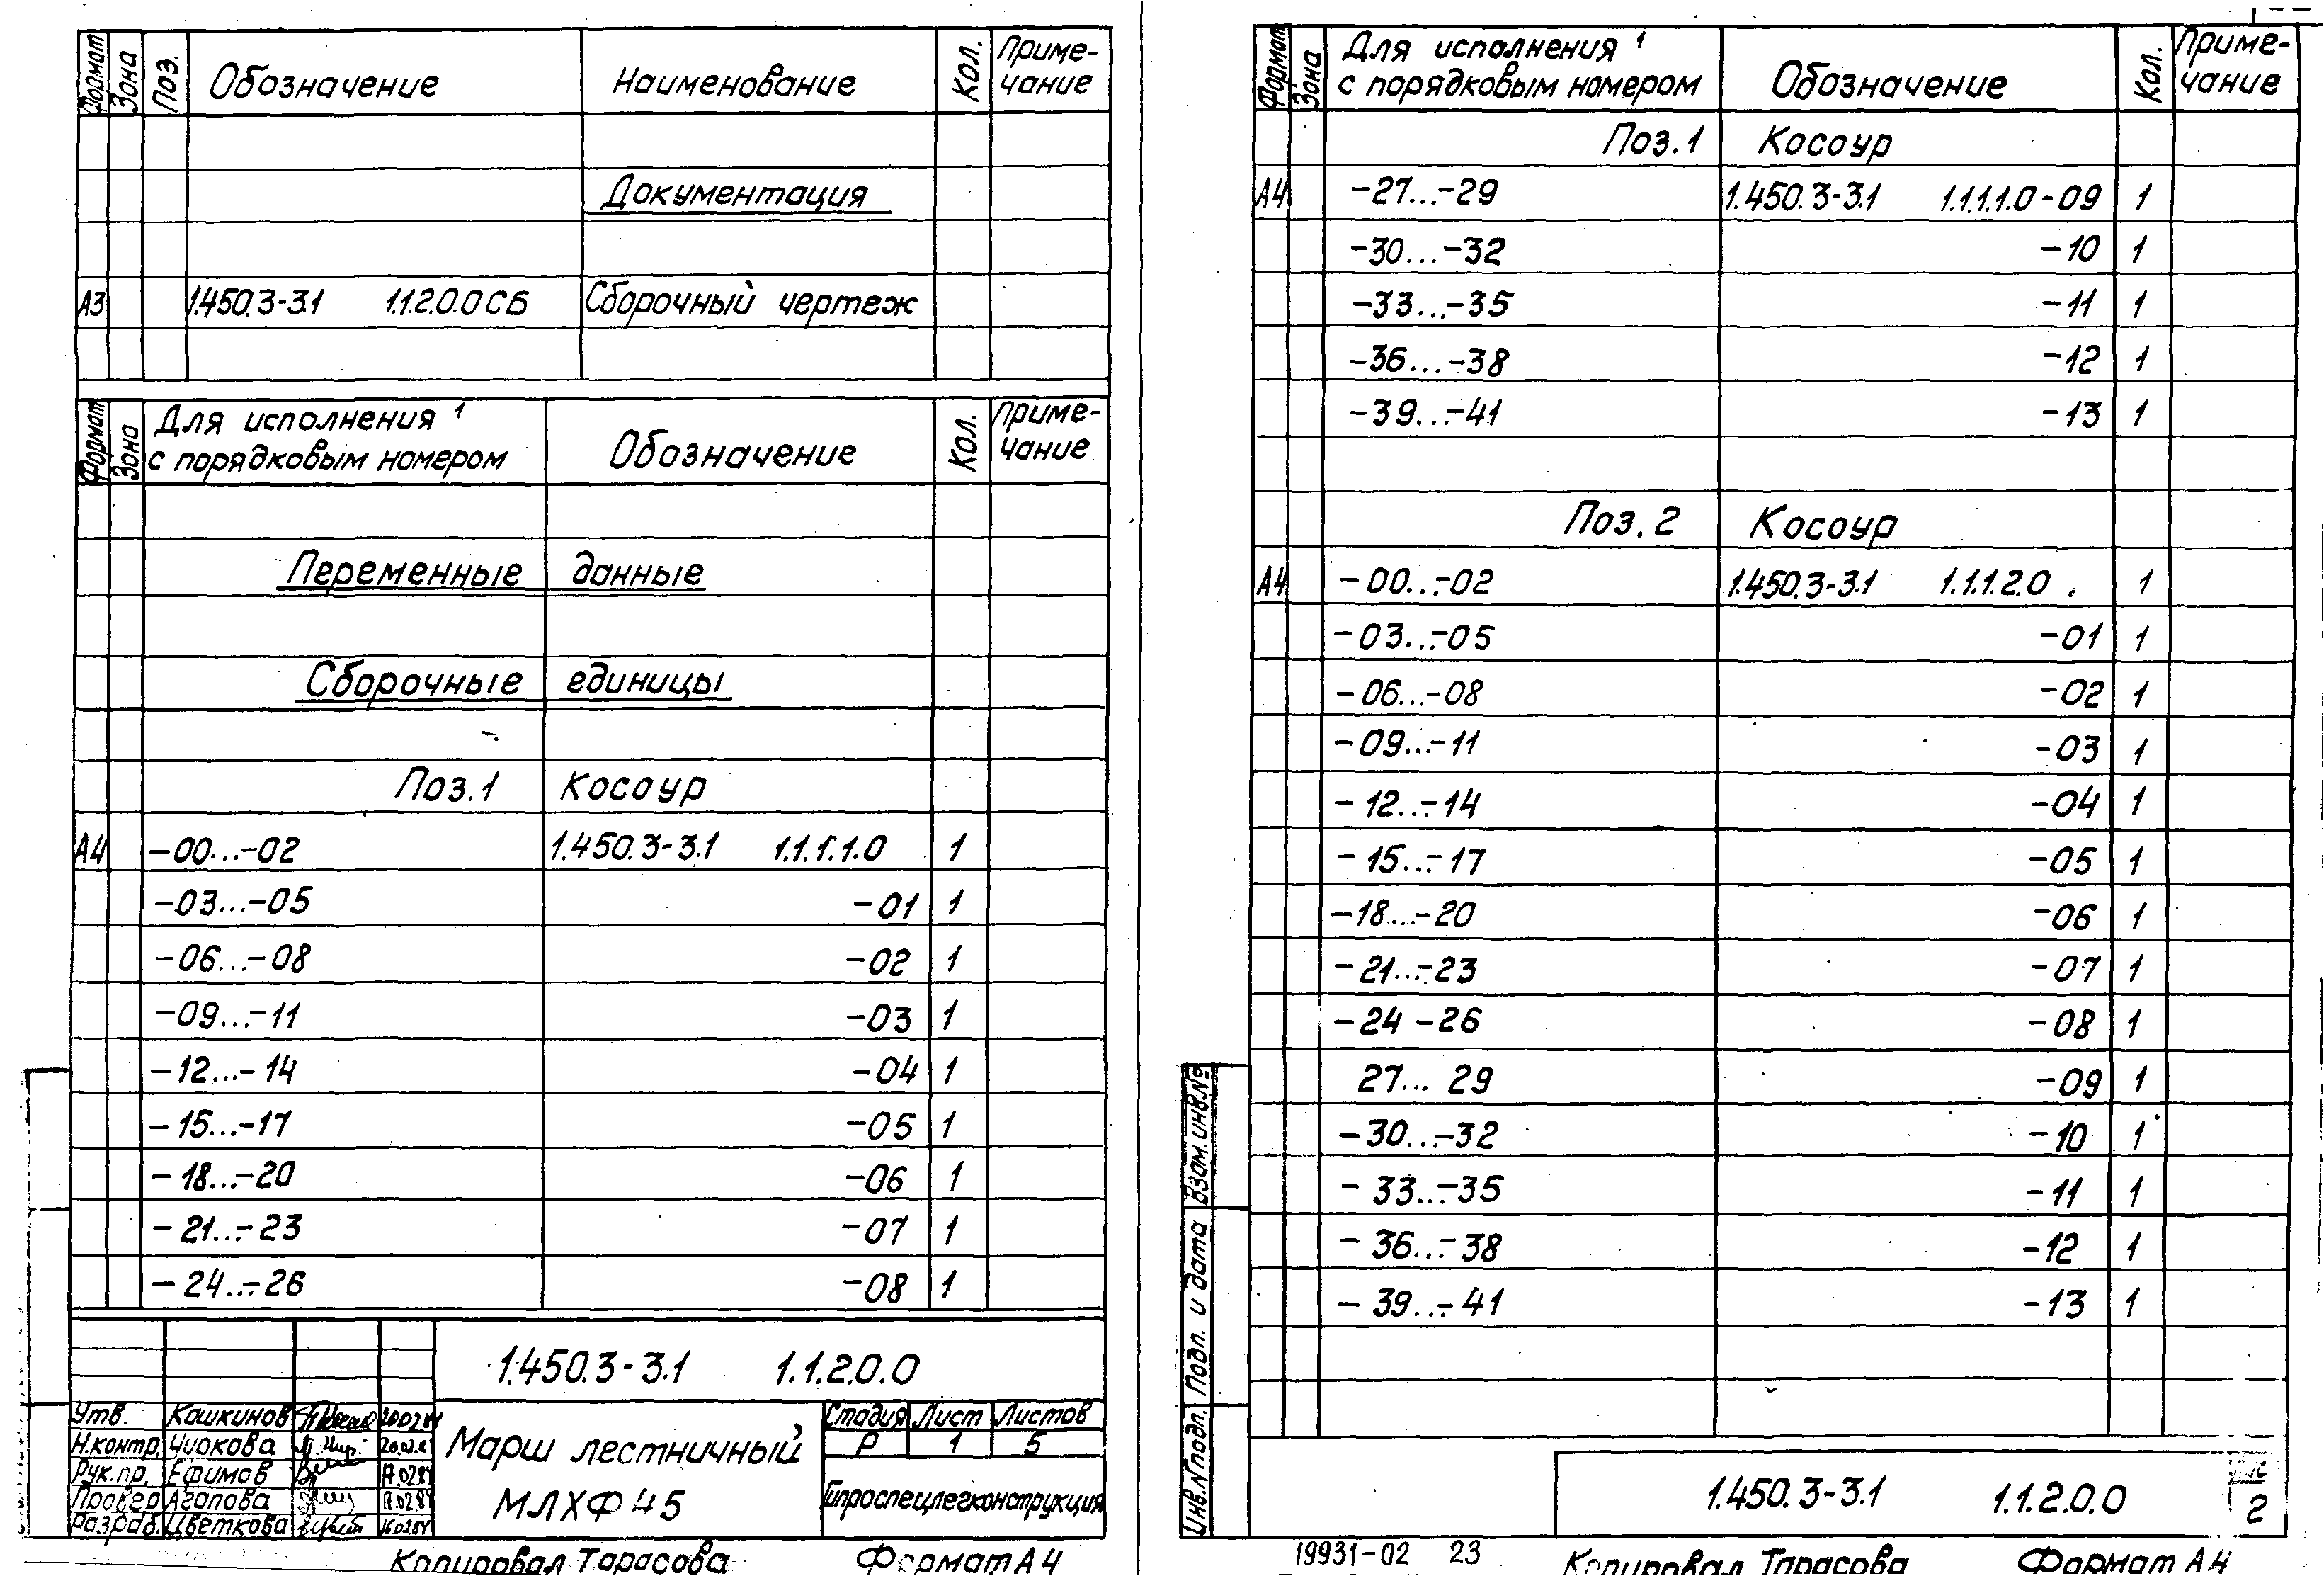 Формат Зона Поз. Обозначение Наименование Кол. Приме-
чание
Документация
А3 1.450.3-3.1 1.1.2.0.0СБ Сборочный чертеж
Формат Зона Для исполнения 1 Обозначение Кол. Приме-
с порядковым номером чание
Переменные данные
Сборочные единицы
Поз.1 Косоур
А4 -00...-02 1.450.3-3.1 1.1.1.1.0 1
-03...-05 -01 1
-06...-08 -02 1
-09...-11 -03 1
-12...-14 -04 1
-15...-17 -05 1
-18...-20 -06 1
-21...-23 -07 1
-24...-26 -08 1
1.450.3-3.1 1.1.2.0.0
Утв. Кашкинов 20.02.84
Н.контр. Чиакова
Рук.пр. Ефимов 17.02.84
Провер Агапова 17.02.84
Разраб. Цветкова 16.02.84
Марш лестничный
МЛХФ45
Стадия Лист Листов
Р 1 5
Гипроспецлегконструкция
Копировал Тарасова Формат А4
Формат Зона Для исполнения 1 Обозначение Кол. Приме-
с порядковым номером чание
Поз.1 Косоур
А4 -27...-29 1.450.3-3.1 1.1.1.1.0-09 1
-30...-32 -10 1
-33...-35 -11 1
-36...-38 -12 1
-39...-41 -13 1
Поз.2 Косоур
А4 -00...-02 1.450.3-3.1 1.1.1.2.0 1
-03...-05 -01 1
-06...-08 -02 1
-09...-11 -03 1
-12...-14 -04 1
-15...-17 -05 1
-18...-20 -06 1
-21...-23 -07 1
-24 -26 -08 1
27... 29 -09 1
-30...-32 -10 1
-33...-35 -11 1
-36...-38 -12 1
-39...-41 -13 1
Инв.№подл. Подп. и дата Взам.инв.№
1.450.3-3.1 1.1.2.0.0
2
19931-02 23 Копировал Тарасова Формат А4